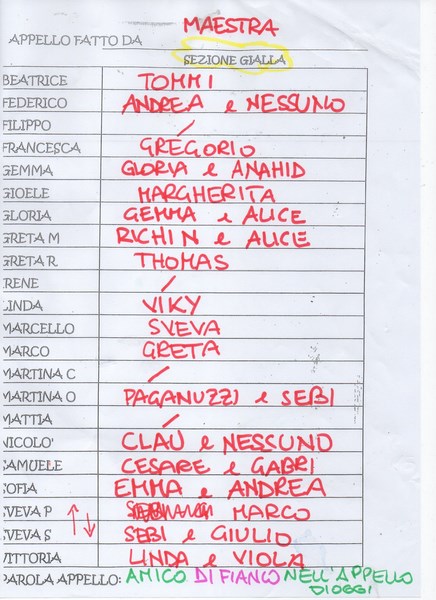 APPELLO FATTO DA MAESTRA
SEZIONE GIALLA
BEATRICE TOMMI
FEDERICO ANDREA e NESSUNO
FILIPPO /
FRANCESCA GREGORIO
GEMMA GLORIA e ANAHID
GIOELE MARGHERITA
GLORIA GEMMA e ALICE
GRETA M RICHIN e ALICE
GRETA R THOMAS
IRENE /
LINDA VIKY
MARCELLO SVEVA
MARCO GRETA
MARTINA C /
MARTINA O PAGANUZZI e SEBI
MATTIA /
NICOLO' CLAU e NESSUNO
SAMUELE CESARE e GABRI
SOFIA EMMA e ANDREA
SVEVA P MARCO
SVEVA S SEBI e GIULIO
VITTORIA LINDA e VIOLA
PAROLA APPELLO: AMICO DI FIANCO NELL'APPELLO
DI OGGI